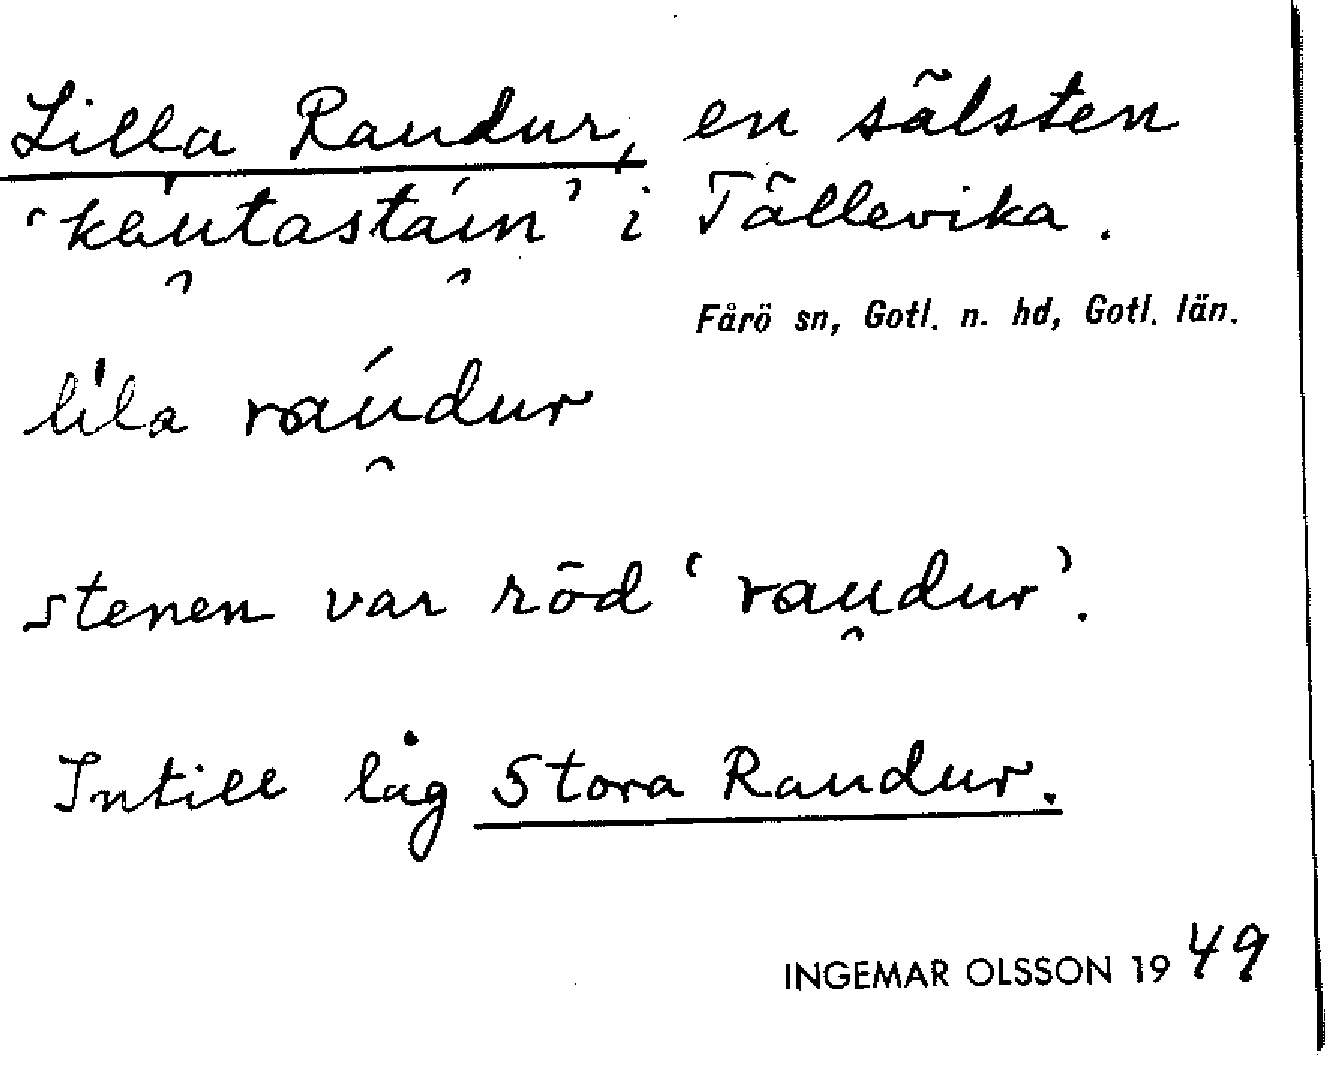 Lilla Raudur, en sälsten
'kåu̯tastai̯n' i Tällevika.
Fårö sn, Gotl. n. hd, Gotl. län.
lila rau̯dur
stenen var röd 'rau̯dur'.
Intill låg Stora Raudur.
INGEMAR OLSSON 1949